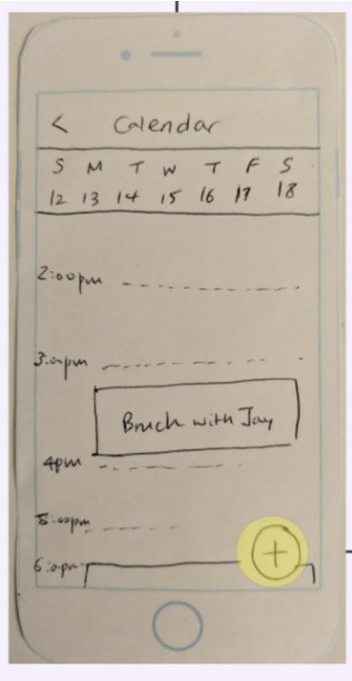 < Calendar
S M T W T F S
12 13 14 15 16 17 18
2:00pm
3:00pm
Bruch with Jay
4pm
5:00pm
6:00pm
+